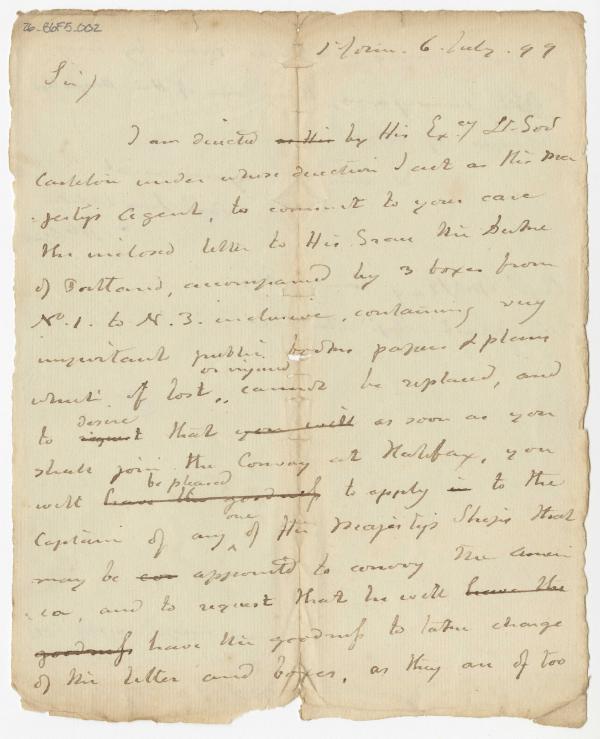 76-B6F5-002
St John. 6. July. 99
Sir)
I am directed as His by His Ex.cy Lt. Gov
Carleton under whose direction I act as His Ma
jesty's Agent, to commit to your care
the inclosed letter to His Grace the Duke
of Portland, accompanied by 3 boxes from
No. 1. to N. 3. inclusive, containing very
important public books papers & plans
or injured
which if lost,, cannot be replaced, and
desire
to request that you will as soon as you
shall join the Convoy at Halifax, you
be pleased
will have the goodness to apply in to the
one
Captain of any ^ of His Majesty's Ships that
may be con appointed to convoy the Ameri
ca, and to request that he will have the
goodness have the goodness to take charge
of the letter and boxes, as they are of too